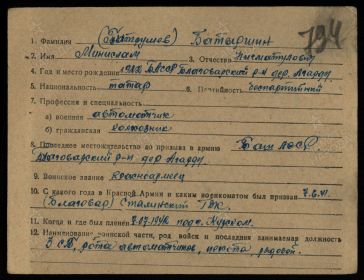 794
1. Фамилия (Батрушев) Батыршин
2. Имя Минислам 3. Отчество Нисматулович
4. Год и место рождения 1912 БАССР Благоварский р-н дер.
5. Национальность татар 6. Партийность беспартийный
7. Профессия и специальность
а) военная автоматчик
б) гражданская колховник
8. Последнее местожительство до призыва в армию Баш АССР,
Благоварский р-н дер.
9. Воинское звание красноармеец
10. С какого года в Красной Армии и каким военкоматом был призван 7.6.41.
Благовар Сталинский ГВК.
11. Когда и где был пленен 7.07.1942 под с.
12. Наименование воинской части, род войск и последняя занимаемая должность
3 СД, рота автоматчиков, пехота рядовой.